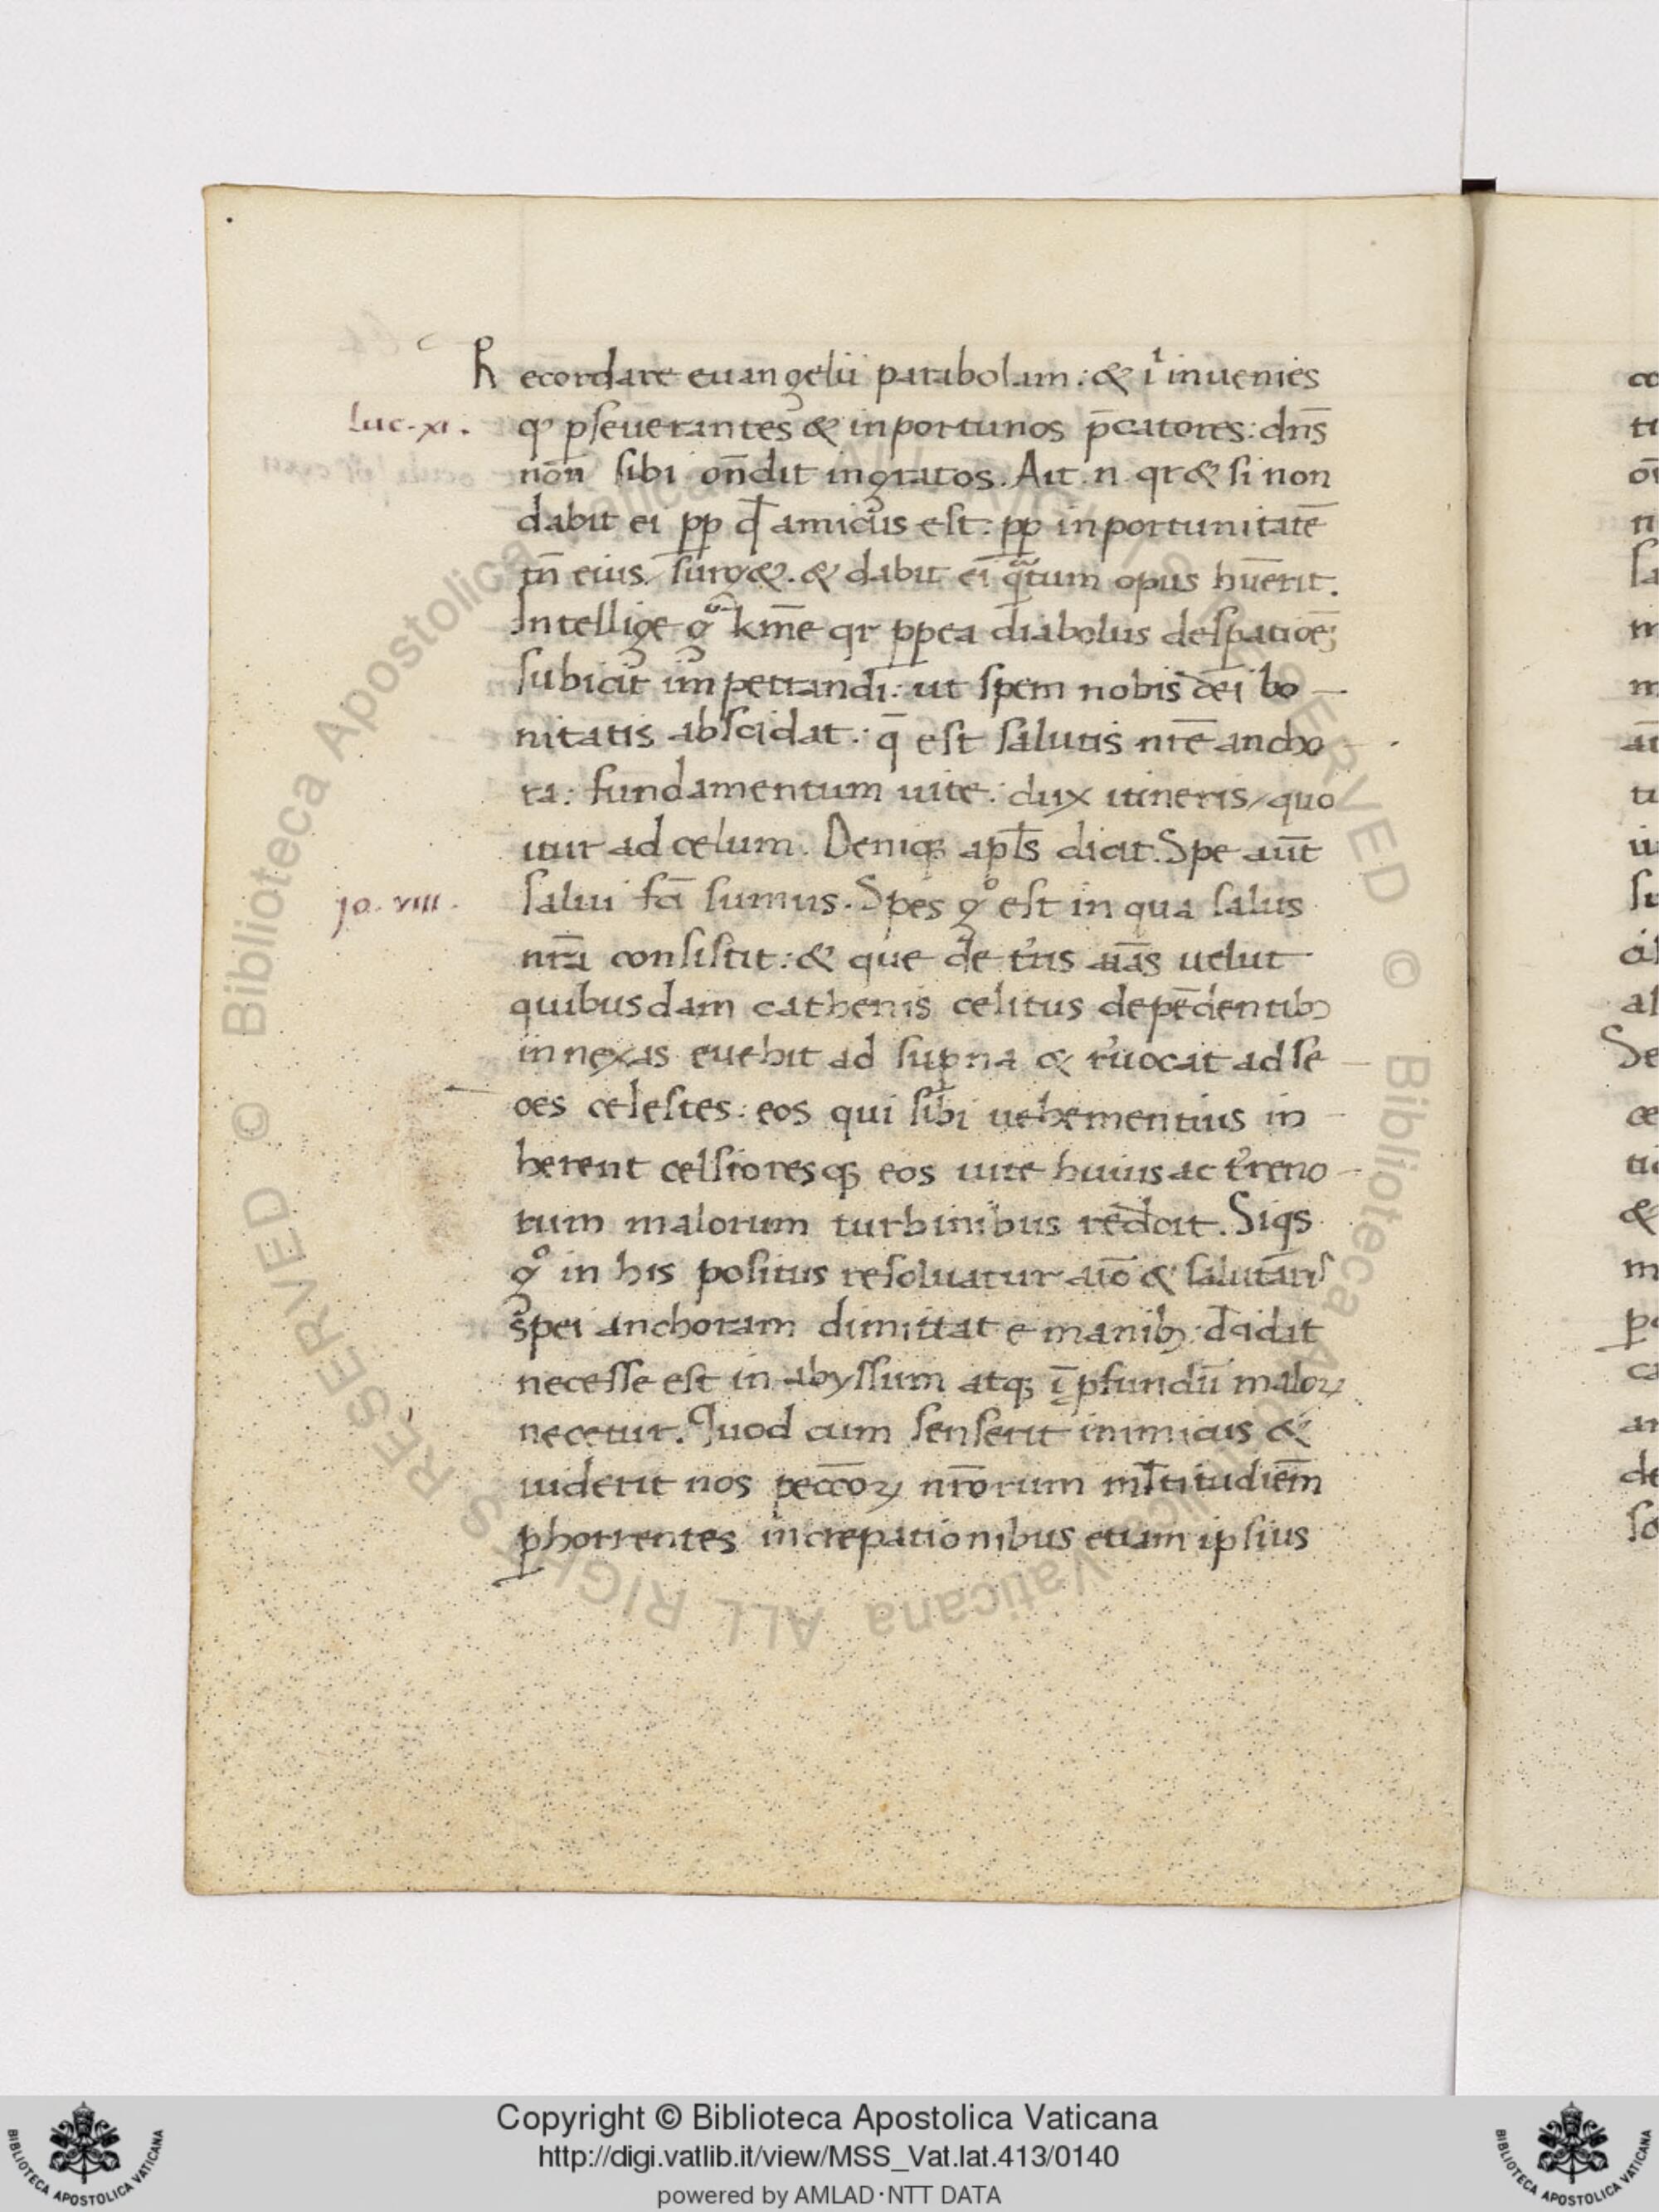 Recordare euangelii parabolam: & i inuenies
luc. xi. qꝫ pseuerantes & inportunos p̄catores: dn̄s
non̄ sibi on̄dit ingratos. Ait n qr & si non
dabit ei pp qđ amicus est: pp inportunitatē
tn̄ eius surg&. & dabit ei q̄tum opus hūerit.
Intellige gͦ km̄e qr ppea diabolus despatiōeꝫ
subicit impetrandi: ut spem nobis dei bo
nitatis abscidat: q̄ est salutis nr̄e ancho
ra: fundamentum uite: dux itineris, quo
itur ad celum. Deniqꝫ apl̄s dicit. Spe aūt
ro. viii. salui fc̄i sumus. Spes gͦ est in qua salus
nr̄a consistit: & que de tr̄is aīas uelut
quibusdam cathenis celitus depēdentibꝫ
innexas euehit ad supna & r̓uocat ad se
oēs celestes: eos qui sibi uehementius in
herent celsioresqꝫ eos uite huius ac t̓reno
rum malorum turbinibus reddit. Siqs
gͦ in his positus resoluatur aīo & salutāris
spei anchoram dimittat e manibꝫ: dcidat
necesse est in abyssum atqꝫ ī pfundū maloꝝ
necetur. Quod cum senserit inimicus &
uiderit nos pecc̄oꝝ nr̄orum ml̄titudiēm
phorrentes increpationibus etiam ipsius
Copyright © Biblioteca Apostolica Vaticana
http://digi.vatlib.it/view/MSS_Vat.lat.413/0140
powered by AMLAD·NTT DATA
BIBLIOTECA APOSTOLICA VATICANA
BIBLIOTECA APOSTOLICA VATICANA
© Biblioteca Apostolica Vaticana ALL RIGHTS RESERVED
© Biblioteca Apostolica Vaticana ALL RIGHTS RESERVED